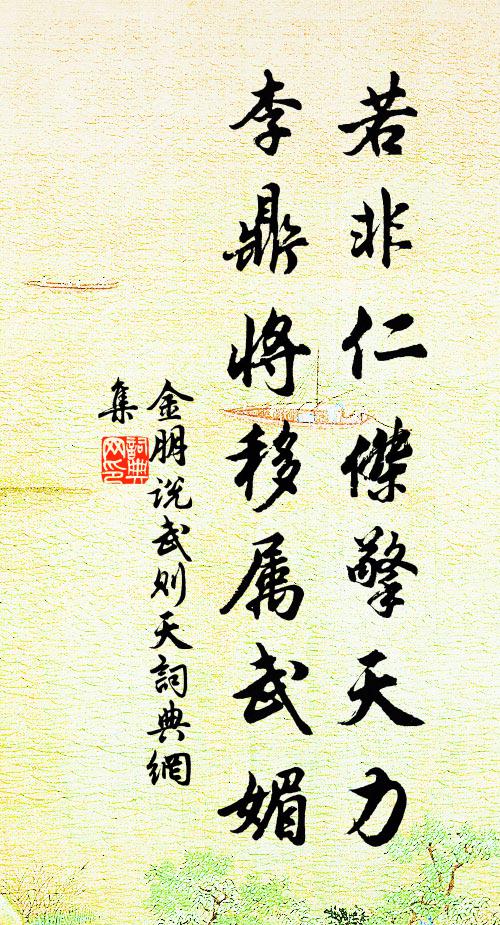 若非仁傑擎天力
李鼎將移属武媚
金朋说武则天詞典網
集
詞典
网印